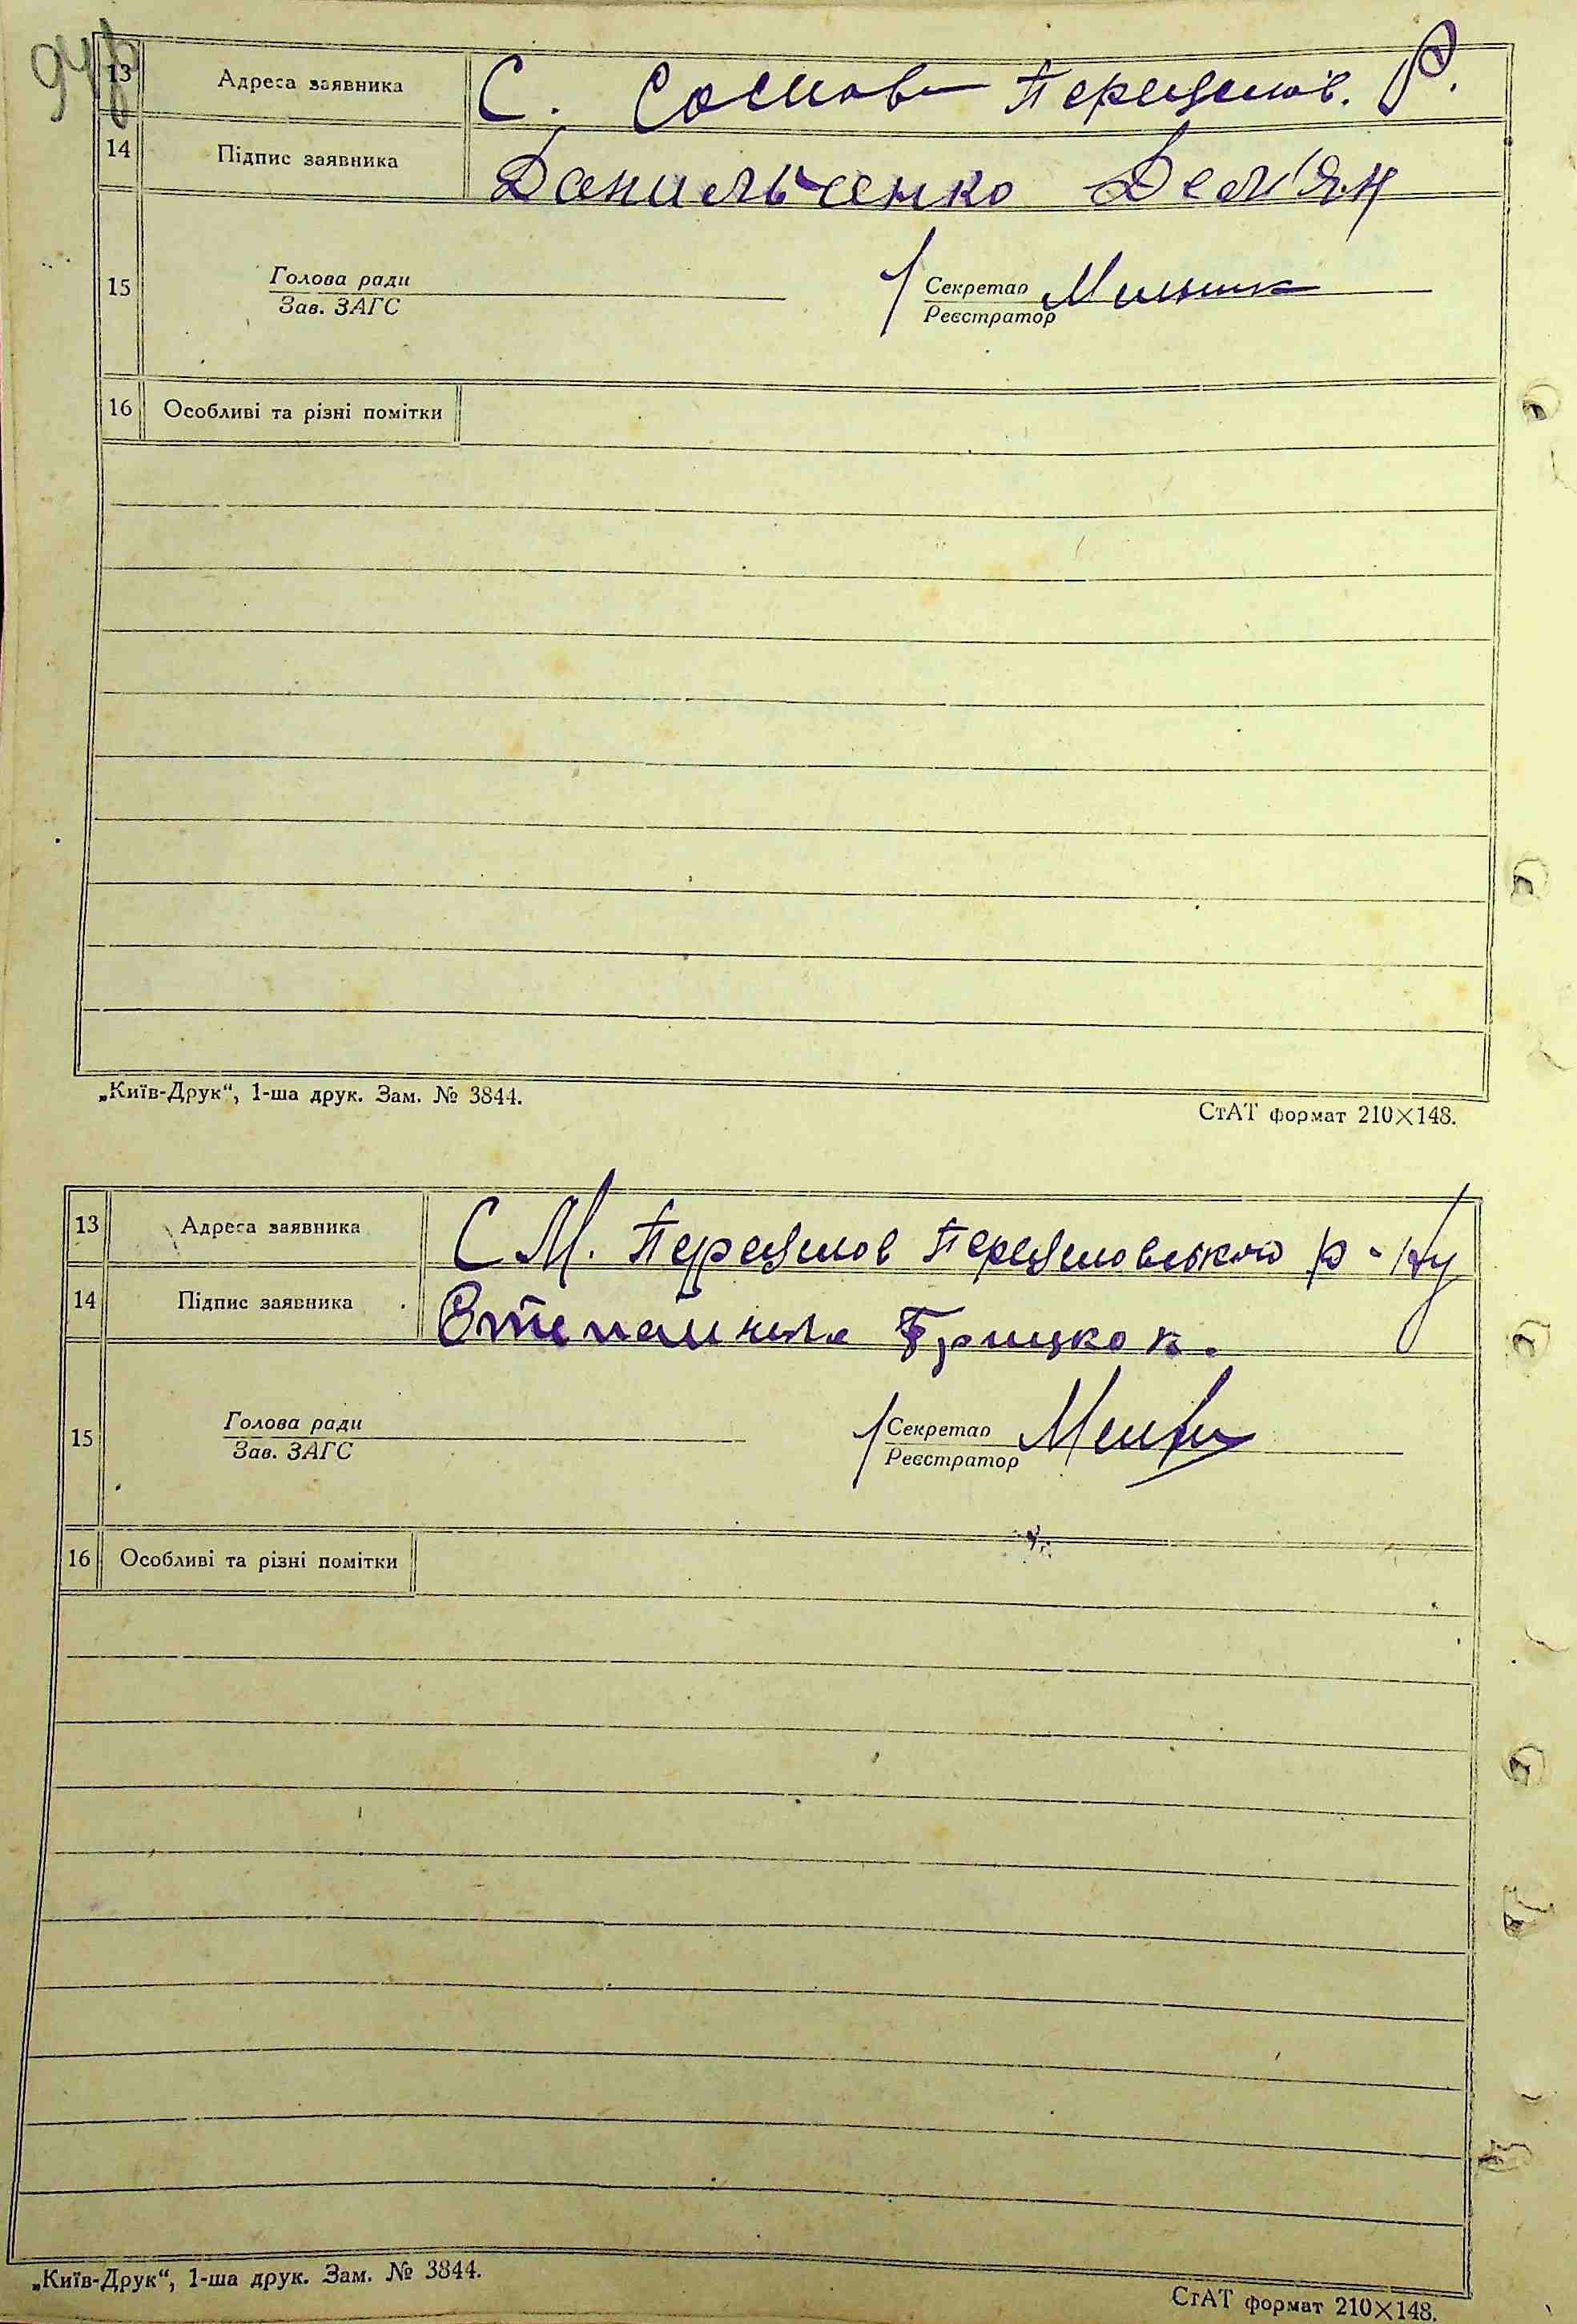 94
13 Адреса заявника С. Соснова Переяслов. Р.
14 Підпис заявника Данильченко Дем'ян
15 Голова ради Секретар Мельник
Зав. ЗАГС Реєстратор
16 Особливі та різні помітки
„Київ-Друк“, 1-ша друк. Зам. № 3844.
СтАТ формат 210×148.
13 Адреса заявника С М. Переяслов Переясловського р-ну
14 Підпис заявника Грицко
15 Голова ради Секретар
Зав. ЗАГС Реєстратор
16 Особливі та різні помітки
„Київ-Друк“, 1-ша друк. Зам. № 3844.
СтАТ формат 210×148.